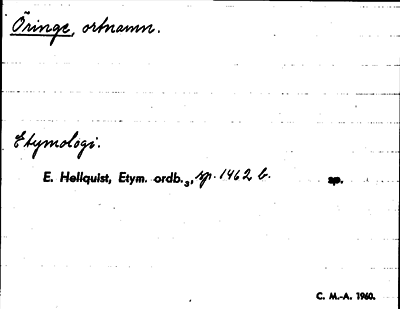 Öringe, ortnamn.
Etymologi.
E. Hellquist, Etym. ordb.₃, sp. 1462 b. sp.
C. M.-A. 1960.